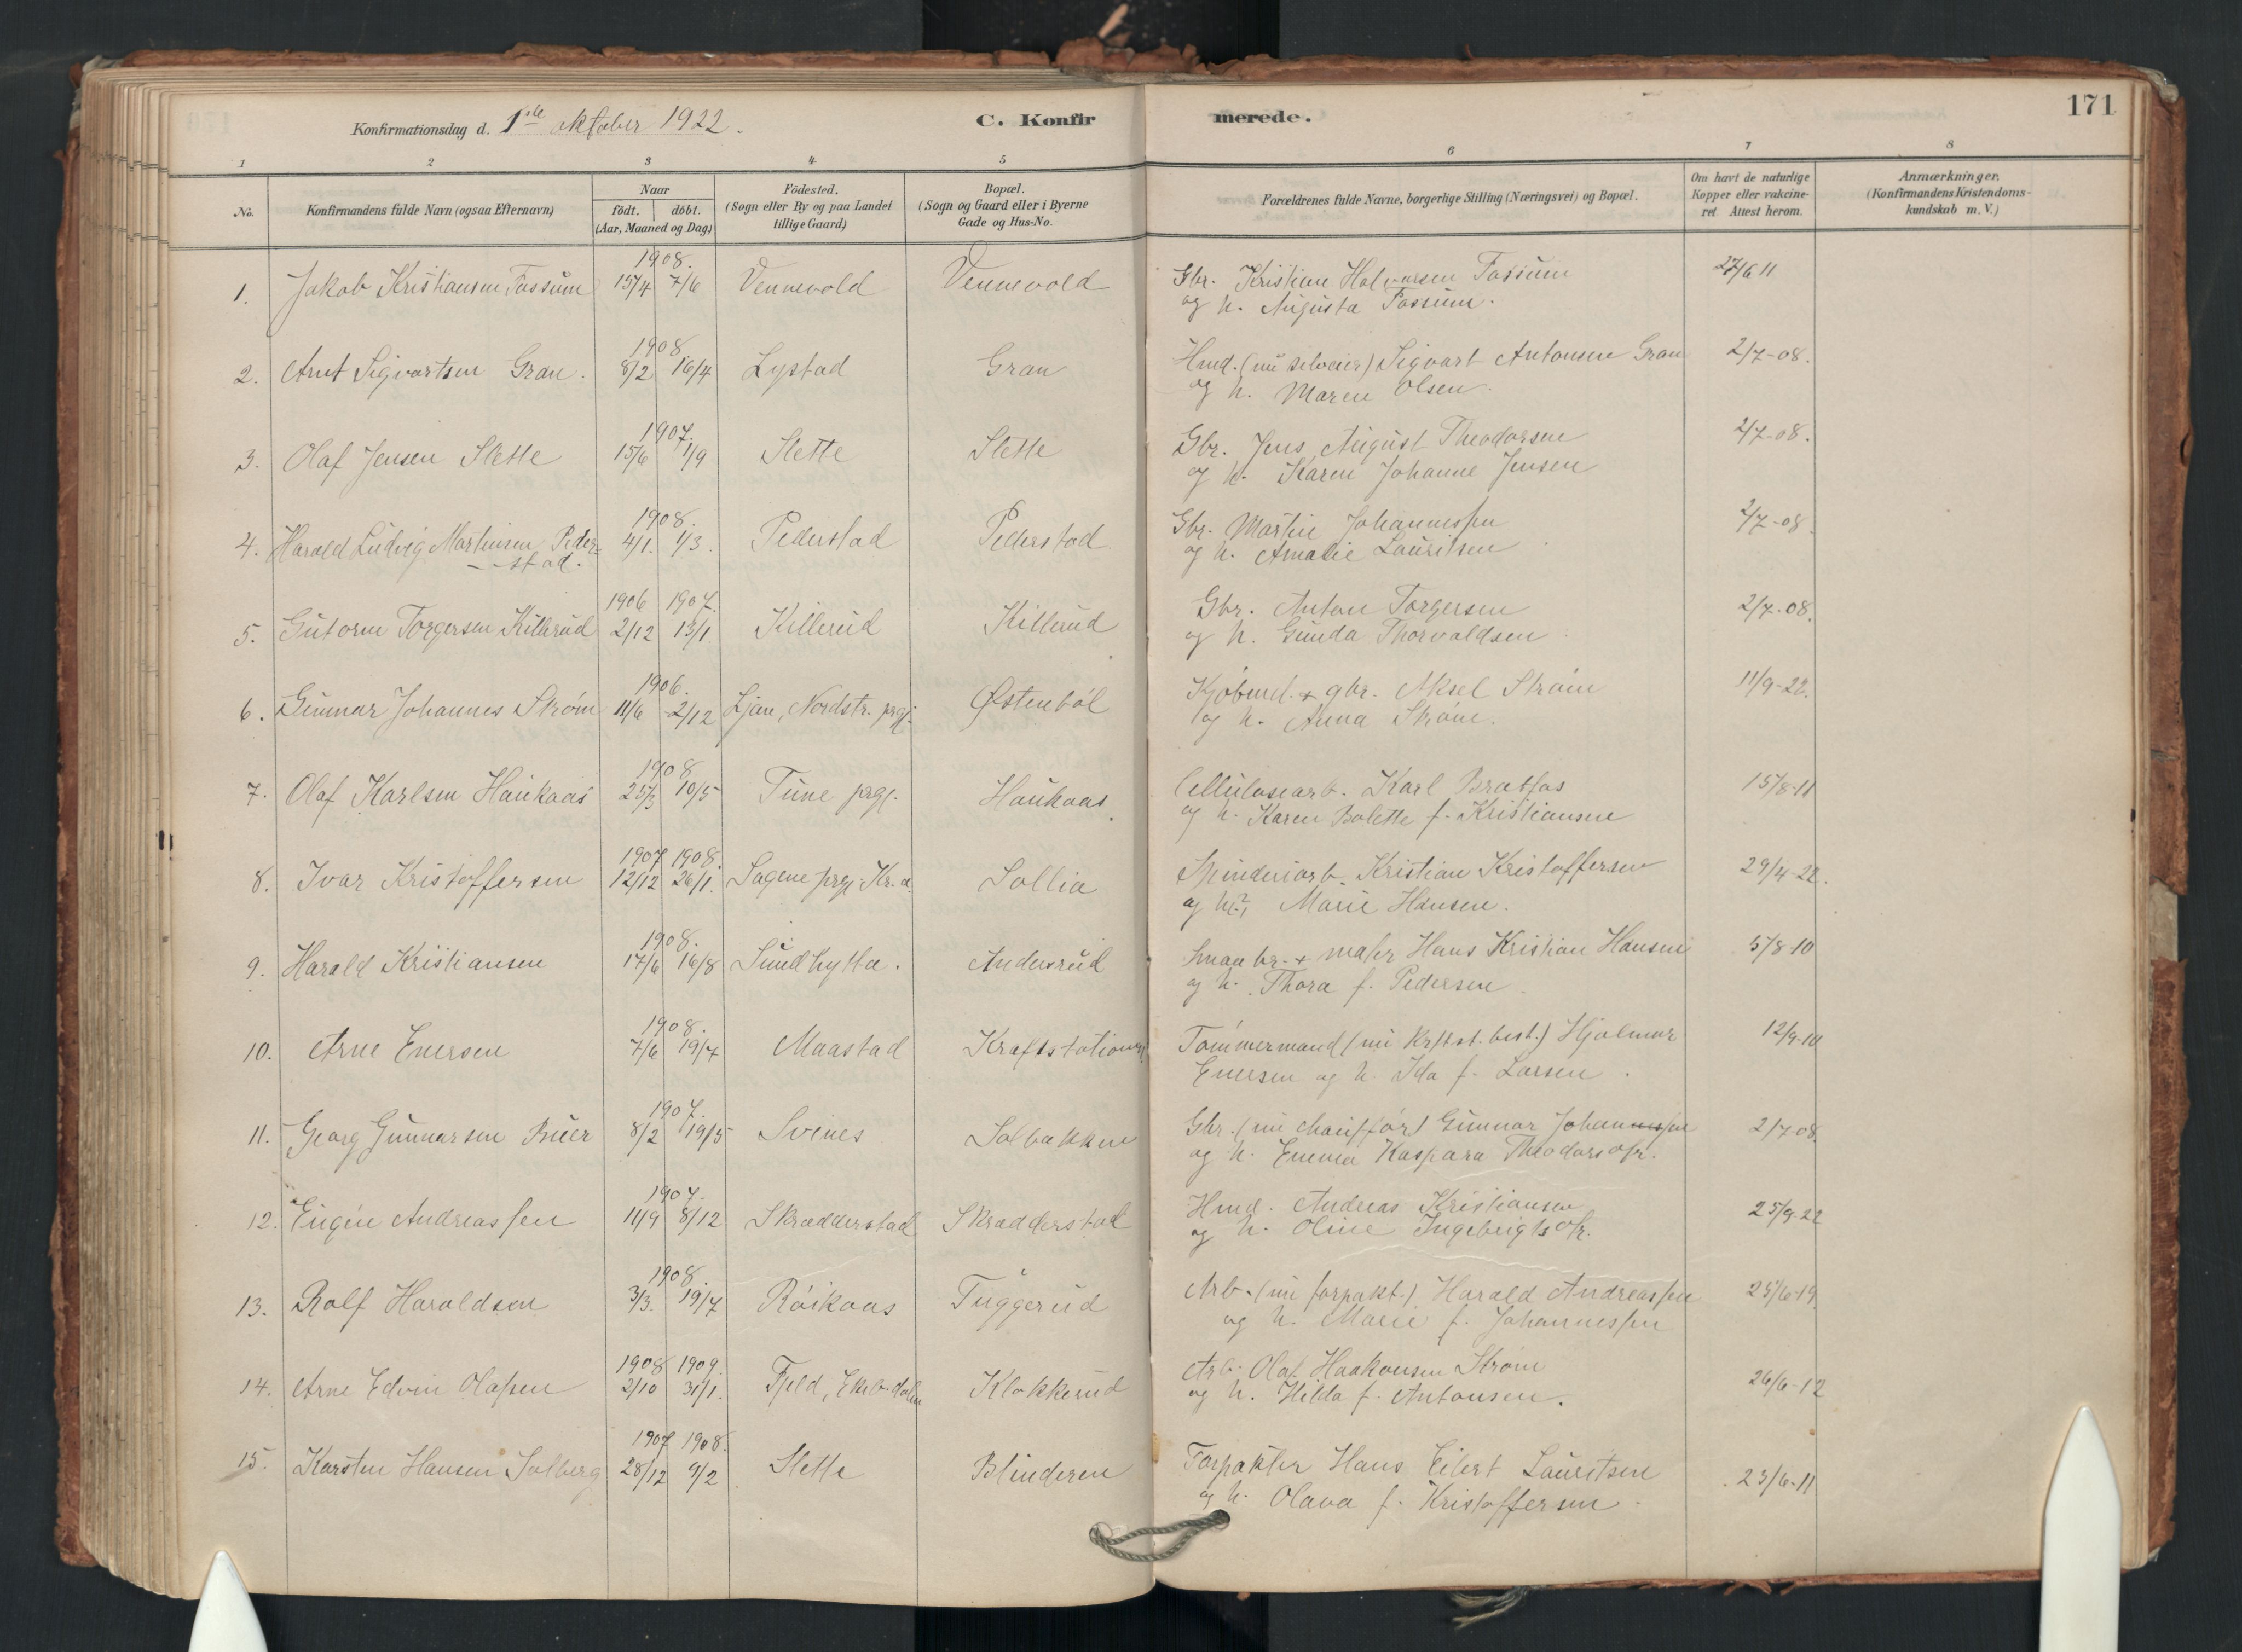 171
Konfirmationsdag d. 1ste oktober 1922.
C. Konfirmerede.
1 2 3 4 5 6 7 8
No.
Konfirmandens fulde Navn (ogsaa Efternavn)
Naar
födt. döbt.
(Aar, Maaned og Dag)
Födested.
(Sogn eller By og paa Landet
tillige Gaard)
Bopæl.
(Sogn og Gaard eller i Byerne
Gade og Hus-No.
Forældrenes fulde Navne, borgerlige Stilling (Næringsvei) og Bopæl.
Om havt de naturlige
Kopper eller vakcine-
ret. Attest herom.
Anmærkninger.
(Konfirmandens Kristendoms-
kundskab m. V.)
1908.
1. Jakob Kristiansen Fossum 15/4 7/6 Vennevold Vennevold Gbr. Kristian Halvorsen Fossum 27/6 11
og h. Augusta Fossum.
1908
2. Arnt Sigvartsen Gran. 8/2 16/4 Lystad Gran Hmd. (nu selveier) Sigvart Antonsen Gran 2/7-08.
og h. Maren Olsen.
1907.
3. Olaf Jensen Slette 15/6 1/9 Slette Slette Gbr. Jens August Theodorsen 2/7-08.
og h. Karen Johanne Jensen
1908.
4. Harald Ludvig Martinsen Peder- 4/1. 1/3. Pederstad Pederstad Gbr. Martin Johannessen 2/7-08.
stad. og h. Amalie Lauritsen
1906 1907.
5. Gutorm Torgersen Killerud 2/12 13/1. Killerud Killerud Gbr. Anton Torgersen 2/7-08.
og h. Gunda Thorvaldsen
1906.
6. Gunnar Johannes Strøm 11/6 2/12 Ljan, Nordstr. prgj. Østenböl Kjöbmd. + gbr. Aksel Strøm 11/9-22.
og h. Anna Strøm.
1908
7. Olaf Karlsen Haukaas 25/3 10/5 Tune prgj. Haukaas Cellulosearb. Karl Bratfos 15/8-11
og h. Karen Bolette f. Kristiansen
1907 1908.
8. Ivar Kristoffersen 12/12 26/1. Sagene prgj. Kr.a. Sollia Spinderiarb. Kristian Kristoffersen 29/4-22.
og h. (?) Marie Hansen.
1908.
9. Harald Kristiansen 17/6 16/8 Sundhytta. Andersrud Smaabr. + maler Hans Kristian Hansen 5/8-10
og h. Thora f. Pedersen
1908.
10. Arne Enersen 7/6 19/7 Maastad Kraftstationen Tömmermand (nu krftst. best.) Hjalmar 12/9-10
Enersen og h. Ida f. Larsen.
1907.
11. Georg Gunnarsen Buer 8/2 19/5 Svines Solbakken Gbr. (nu chauffør) Gunnar Johannessen 2/7-08
og h. Emma Kaspara Theodorsdtr.
1907.
12. Eugen Andreassen 11/9 8/12 Skradderstad Skradderstad Hmd. Andreas Kristiansen 25/9-22
og h. Oline Ingebrigtsdtr.
1908
13. Rolf Haraldsen 3/3. 19/7 Röikaas Tuggerud Arb. (nu forpakt.) Harald Andreassen 25/6-19
og h. Marie f. Johannessen
1908 1909.
14. Arne Edvin Olafsen 2/10 31/1. Fjeld, Ekeb.dalen Klokkerud Arb. Olaf Haakonsen Strøm 26/6-12
og h. Hilda f. Antonsen.
1907 1908.
15. Karsten Hansen Solberg 28/12 9/2 Slette Blinderen Forpakter Hans Eilert Lauritsen 23/6-11
og h. Olava f. Kristoffersen.